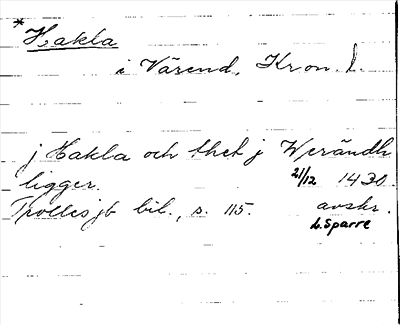 * Hakla
i Värend, Kron. l.
j Hakla och thet j Werändh
ligger. 21/12 1430
Trolles jb bil., s. 115. avskr.
L. Sparre